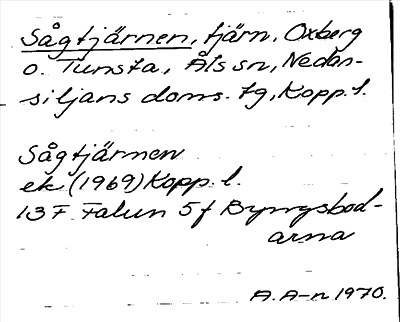 Sågtjärnen, tjärn, Oxberg
o. Tunsta, Åls sn, Nedan-
siljans doms. tg, Kopp. l.
Sågtjärnen
ek (1969) Kopp. l.
13 F Falun 5 f Bynngsbod-
arna
A. A-n 1970.